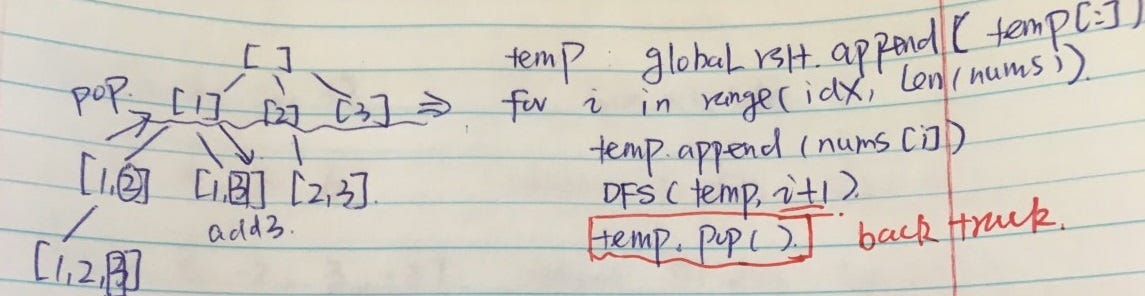 [ ]
pop. [1] [2] [3] ⇒
[1,2] [1,3] [2,3].
add3.
[1,2,3]
temp : global rslt.append( temp[:])
for i in range(idx, len(nums)).
temp.append(nums[i])
DFS(temp, i+1).
temp.pop(). back track.